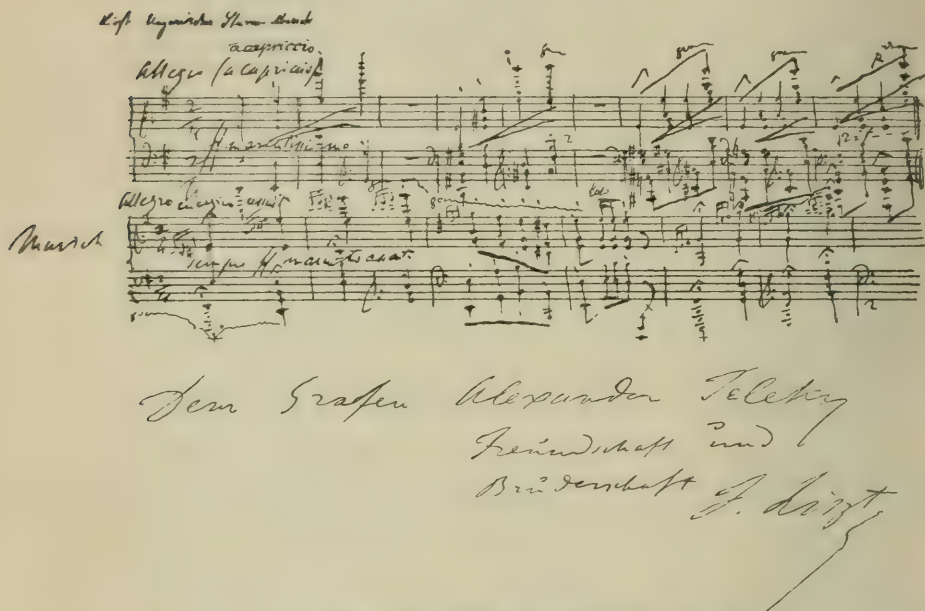 Liszt Ungarischer Sturm Marsch
a capriccio
Allegro (a capriccio)
ff marcatissimo
Allegro energico assai
Marsch
sempre ff marcato assai
Dem Grafen Alexander Teleky
Freundschaft und
Brüderschaft
F. Liszt